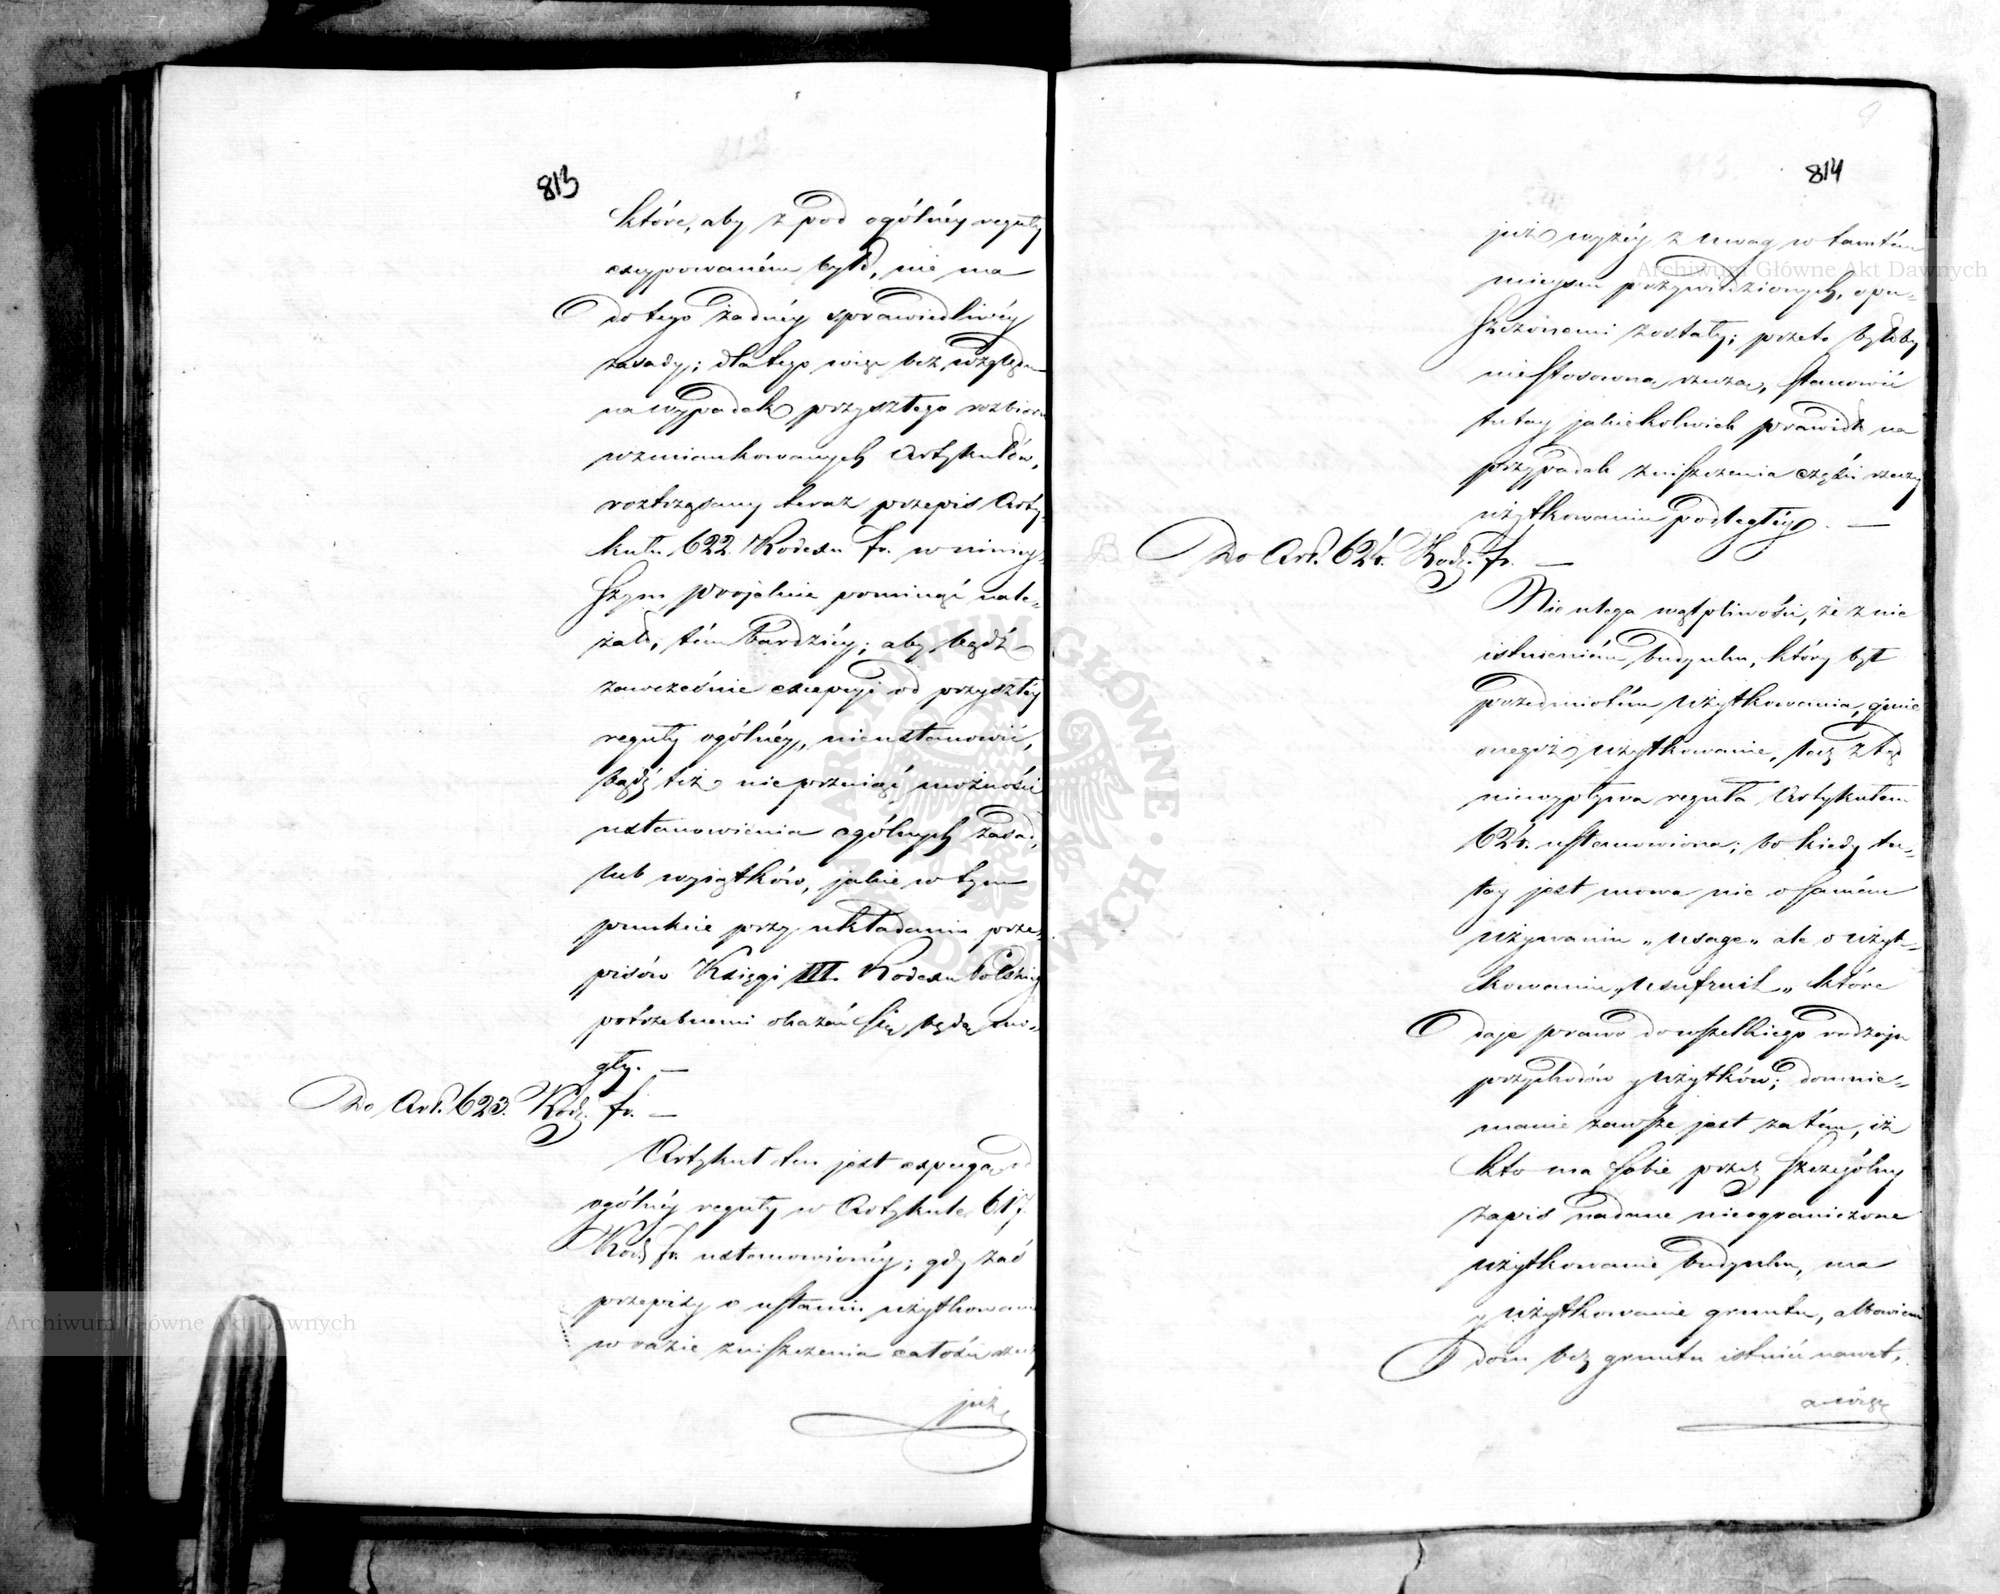 813
które, aby z pod ogólnéy reguły
excypowaném było, nie ma
do tego żadnéy sprawiedliwéy
zasady; dla tego więc bez względu
na wypadek przyszłego rozbioru
wzmiankowanych Artykułów,
roztrząsany teraz przepis Arty-
kułu 622 Kodexu fr. w niniey-
szym projekcie pominąć nale-
żało, tém bardziéy; aby bądź
zawcześnie excepcyi od przyszłéy
reguły ogólnéy, nieustanowić,
bądź też nie przeciąć możności
ustanowienia ogólnych zasad,
lub wyiątków, jakie w tym
punkcie przy układaniu prze-
pisów Księgi III. Kodexu Polskiego
potrzebnemi okazać się będą mo-
gły. —
Do Art. 623. Kod. fr. —
Artykuł ten jest excepcyą od
ogólnéy reguły w Artykule 617.
Kod. fr. ustanowionéy; gdy zaś
przepisy o ustaniu użytkowania
w razie zniszczenia całości rzeczy
już
814
już wyżéy z uwag w tamtém
mieyscu przywiedzionych, opu-
szczonemi zostały; przeto byłoby
niestosowną rzeczą, stanowić
tutay jakiekolwiek prawidło na
przypadek zniszczenia części rzeczy
użytkowaniu podległéy. —
Do Art. 624. Kod. fr. —
Nie ulega wątpliwości, że z nie
istnieniém budynku, który był
przedmiotém użytkowania, ginie
onegoż użytkowanie, lecz z tąd
niewypływa reguła Artykułem
624. ustanowiona; bo kiedy tu-
tay jest mowa nie o samém
używaniu „usage„ ale o użyt-
kowaniu „usufruit„ które
daje prawo do wszelkiego rodzaju
przychodów y użytków; domnie-
manie zawsze jest zatém, iż
kto ma sobie przez szczególny
zapis nadane nieograniczone
użytkowanie budynku, ma
y użytkowanie gruntu, albowiem
dom bez gruntu istnieć nawet,
a więc
Archiwum Główne Akt Dawnych
Archiwum Główne Akt Dawnych
ARCHIWUM GŁÓWNE AKT DAWNYCH